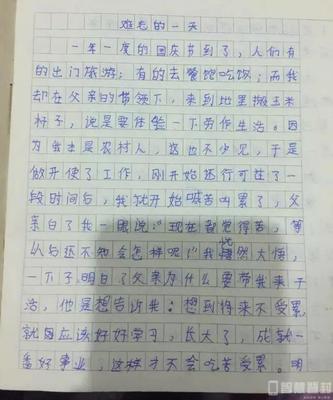 难忘的一天
一年一度的国庆节到了，人们有
的出门旅游；有的去餐馆吃饭；而我
却在父亲的带领下，来到地里搬玉米
杆子，说是要体验一下劳作生活。因
为我也是农村人，这也不少见，于是
做开使了工作，刚开始还行可在了一
段时间后，我就开始喊苦叫累了，父
亲白了我一眼说：“现在都觉得苦，等
从后还不知会怎样呢！”我恍然大悟，
一下子明白了父亲为什么要带我来干
活，他是想告诉我：想到将来不受累，
就因应该好好学习，长大了，成就一
番好事业，这样才不会吃苦受累。明
智慧背封